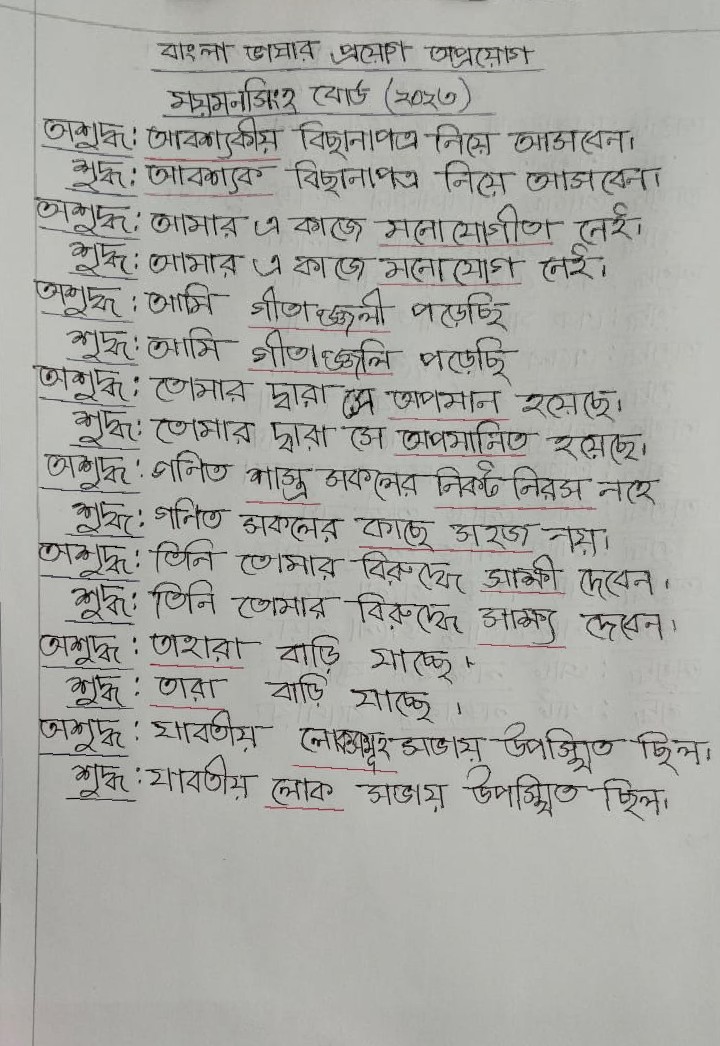 বাংলা ভাষার প্রয়োগ অপপ্রয়োগ
ময়মনসিংহ বোর্ড (২০২৩)
অশুদ্ধ: আবশ্যকীয় বিছানাপত্র নিয়ে আসবেন।
শুদ্ধ: আবশ্যক বিছানাপত্র নিয়ে আসবেন।
অশুদ্ধ: আমার এ কাজে মনোযোগীতা নেই।
শুদ্ধ: আমার এ কাজে মনোযোগ নেই।
অশুদ্ধ: আমি গীতাঞ্জলী পড়েছি
শুদ্ধ: আমি গীতাঞ্জলি পড়েছি
অশুদ্ধ: তোমার দ্বারা সে অপমান হয়েছে।
শুদ্ধ: তোমার দ্বারা সে অপমানিত হয়েছে।
অশুদ্ধ: গনিত শাস্ত্র সকলের নিকট নিরস নহে
শুদ্ধ: গনিত সকলের কাছে সহজ নয়।
অশুদ্ধ: তিনি তোমার বিরুদ্ধে সাক্ষী দেবেন।
শুদ্ধ: তিনি তোমার বিরুদ্ধে সাক্ষ্য দেবেন।
অশুদ্ধ: তাহারা বাড়ি যাচ্ছে।
শুদ্ধ: তারা বাড়ি যাচ্ছে।
অশুদ্ধ: যাবতীয় লোকসমূহ সভায় উপস্থিত ছিল।
শুদ্ধ: যাবতীয় লোক সভায় উপস্থিত ছিল।